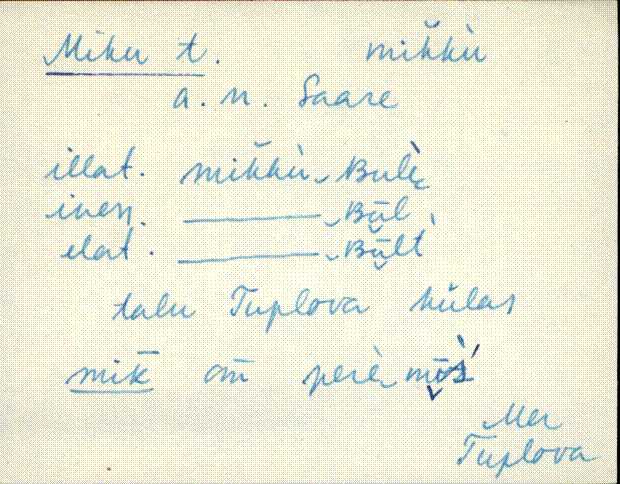 Miku t. mik̆kù
a. n. Saare
illat. mik̆kù Bulè
iness. ——— Būl
elat. ——— Būlt
talu Tuplova külas
mik̄ om̄ perè
Mer
Tuplova